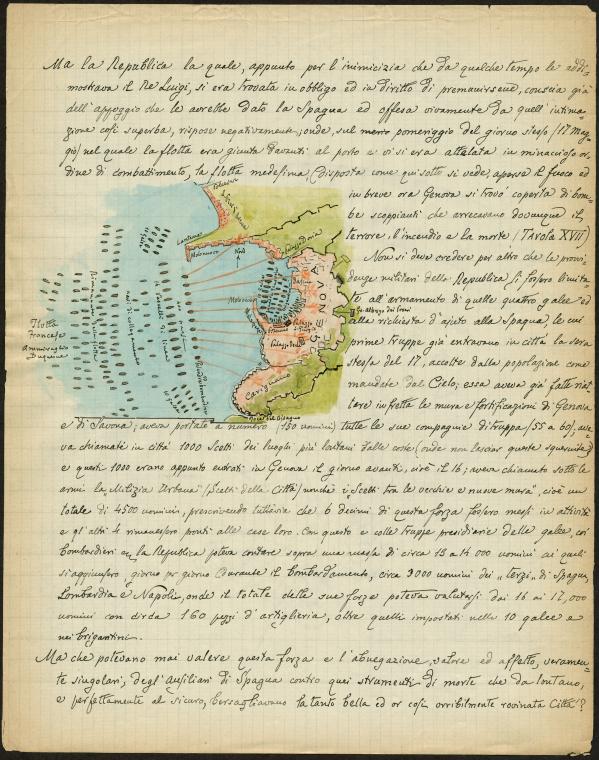 Ma la Republica la quale, appunto per l'inimicizia che da qualche tempo le addi-
mostrava il Re Luigi, si era trovata in obbligo ed in diritto di premunirsene, conscia già
dell'appoggio che le avrebbe dato la Spagua ed offesa vivamente da quell'intima-
zione così superba, rispose negativamente; onde, sul pomeriggio del giorno stesso (17 Mag-
gio) nel quale la flotta era giunta davanti al porto e vi si era attelata in minaccioso or-
dine di combattimento, la flotta medesima, (disposta come qui sotto si vede) aperse il fuoco ed
in breve ora Genova si trovò coperta di bom-
be scoppianti che arrecavano dovunque il
terrore, l'incendio e la morte (TAVOLA XVII)
Non si deve credere per altro che le provi-
denze militari della Republica si fossero limita-
te all'armamento di quelle quattro galee ed
alla richiesta d'ajuto alla Spagna, le cui
prime truppe già entravano in città la sera
stessa del 17, accolte dalla popolazione come
mandate dal Cielo; essa aveva già fatte riat-
tare in fretta le mura e fortificazioni di Genova
e di Savona; aveva portate a numero (150 uomini) tutte le sue compagnie di truppa (55 a 60); ave-
va chiamati in città 1000 Scelti dei luoghi più lontani dalle coste (onde non lasciar queste sguernite)
e questi 1000 erano appunto entrati in Genova il giorno avanti, cioè il 16; aveva chiamato sotto le
armi la „Milizia Urbana" (Scelti della Città) nonchè i „Scelti tra le vecchie e nuove mura", cioè un
totale di 4500 uomini, prescrivendo tuttavia che 6 decimi di questa forza fossero messi in attività
e gl'altri 4 rimanessero pronti alle case loro. Con questo e colle truppe presidiarie delle galee, coi
bombardieri la Republica poteva contare sopra una massa di circa 13 a 14 000 uomini ai quali
si aggiunsero, giorno per giorno durante il bombardamento, circa 3000 uomini dei „terzi" di Spagna,
Lombardia e Napoli, onde il totale delle sue forze poteva valutarsi dai 16 ai 17,000
uomini con circa 160 pezzi d'artiglieria, oltre quelli impostati nelle 10 galee e
nei brigantini.
Ma che potevano mai valere questa forza e l'abnegazione, valore ed affetto, veramen-
te singolari, degl'Ausiliari di Spagua contro quei strumenti di morte che da lontano,
e perfettamente al sicuro, bersagliavano la tanto bella ed or così orribilmente rovinata Città?
Lanterna
Molo nuovo
Molo vecchio
Carignano
Foce del Bisagno
GENOVA
Flotta
francese
Ammiraglio
Duquesne